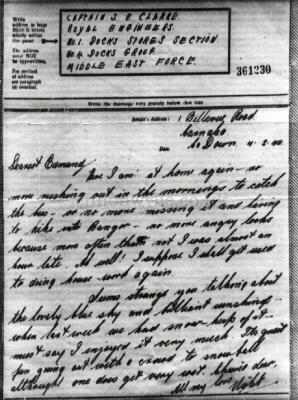 Write
address in large
BLOCK letters
wholly within
this panel
The address
must NOT
be typewritten.
For method
of address
see paragraph
(4) overleaf.
CAPTAIN J E CLARKE.
ROYAL ENGINEERS.
No.1. DOCKS STORES SECTION
No.4. DOCKS GROUP.
MIDDLE EAST FORCE.
361230
Write the message very plainly below this line
Sender's Address: 1 Bellevue Road
Co Down.
Date
Dearest
Here I am at home again - no
more rushing out in the mornings to catch
the bus - or no more missing it and having
to hike into Bangor - no more angry looks
because more often than not I was almost an
hour late. Ah well! I suppose I shall get used
to doing house work again.
Seems strange you talking about
the lovely blue sky and brilliant sunshine -
when last week we had snow heaps of it -
must say I enjoyed it very much. It's great
fun going out with a crowd to snowball
although one does get very wet.
All my love